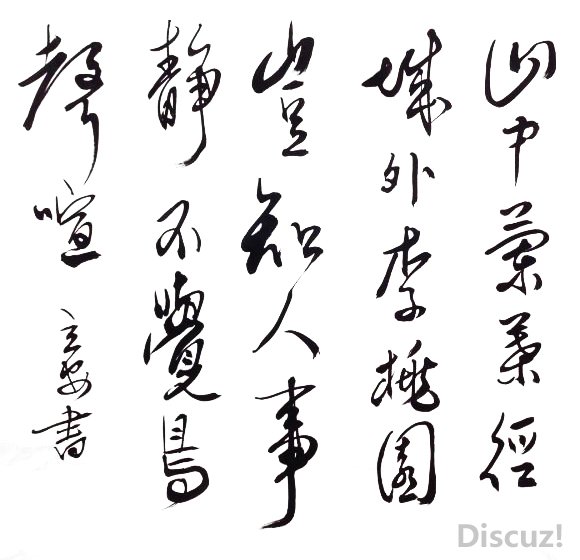 山中蘭葉徑
城外李桃園
豈知人事
靜不覺鳥
聲喧 書
Discuz!